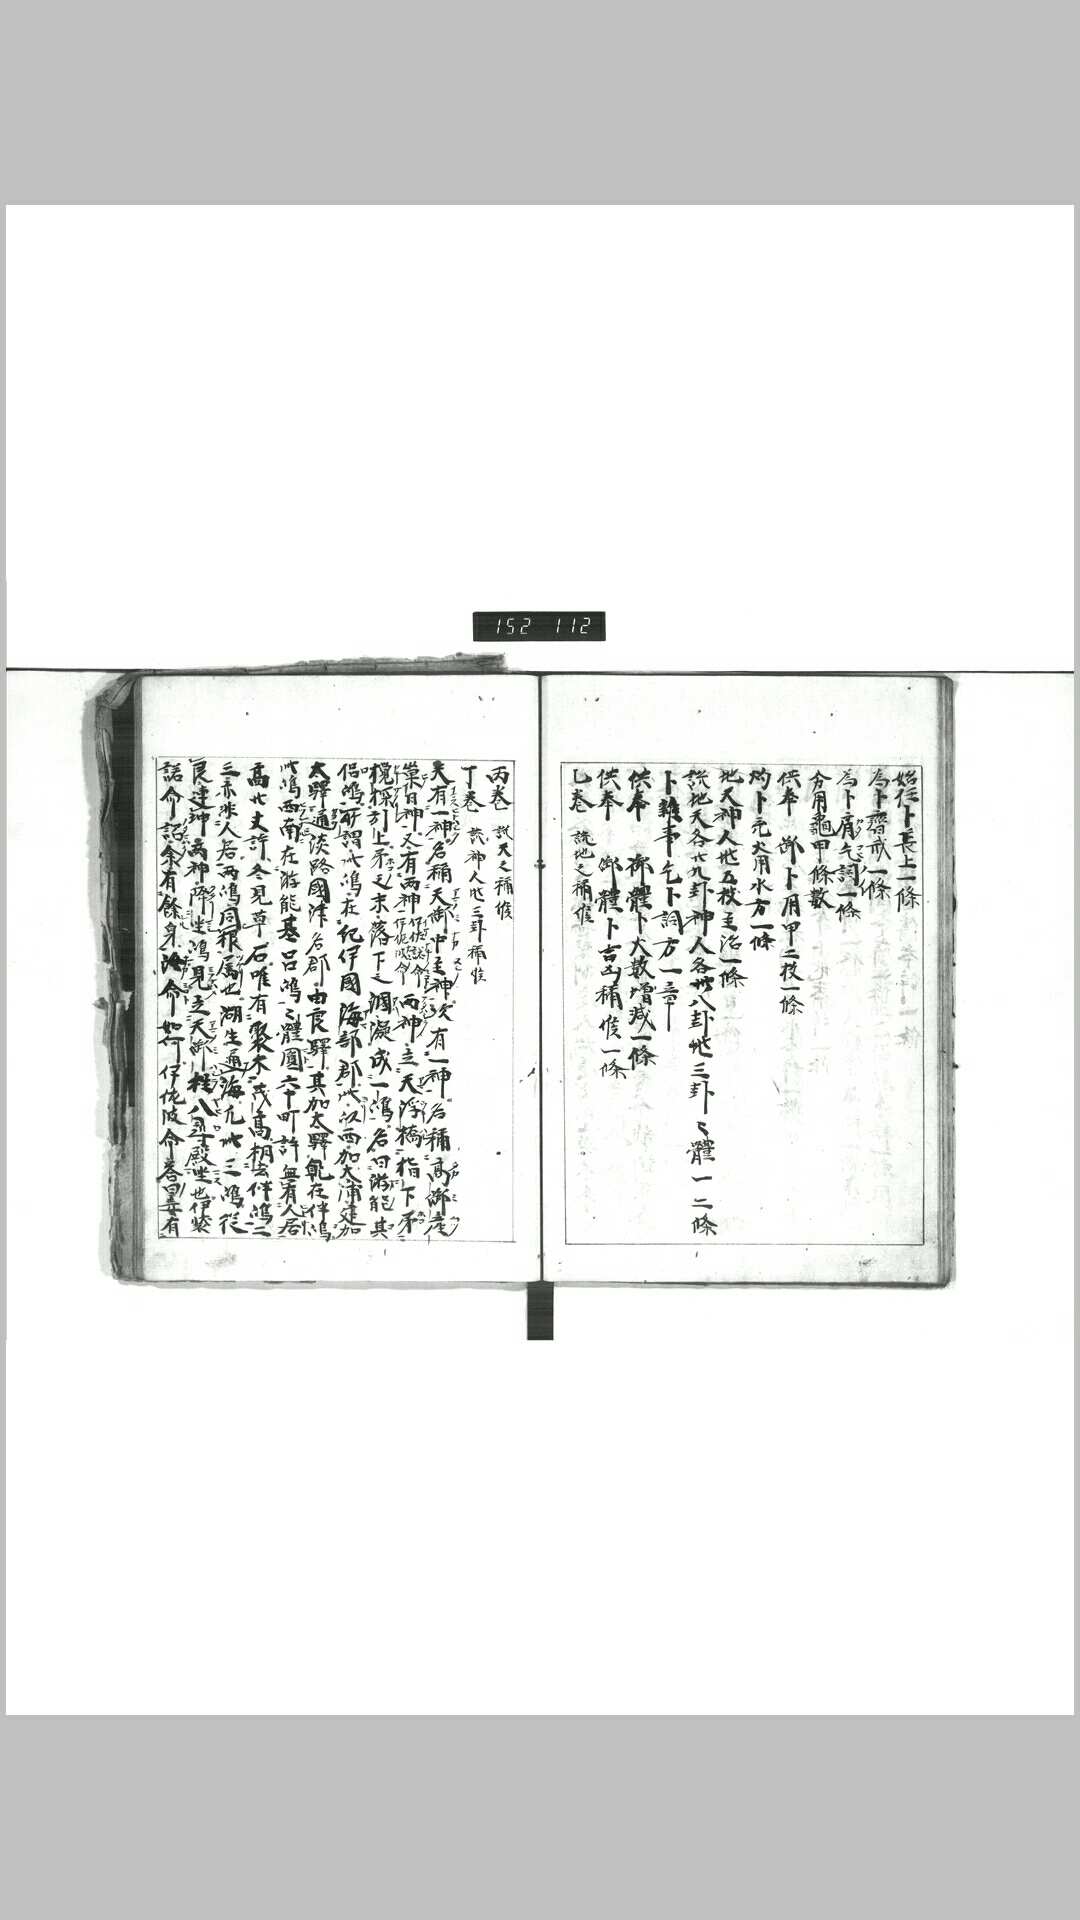 152 112
始任卜長上一條
為卜齋戒一條
為卜肩乞詞一條
分用龜甲條數
供奉 御卜用甲二枚一條
灼卜元火用水方一條
地天神人兆五枚主治一條
説地天各 九卦神人各卅八卦兆三卦〻體一二條
卜雜事乞卜詞方一章
供奉 御體卜大數增減一條
供奉 御體卜吉凶稱候一條
乙卷 説地之稱候
丙卷 説天之稱候
丁卷 説神人兆三卦稱候
天有一神名稱天御中主神次有一神名稱高御產
巢日神又有兩神 伊佐諾命 伊佐波命 兩神立天浮橋指下矛
攪探引上矛之末落下之凋凝成一嶋名曰游能其
侶嶋所謂此嶋在紀伊國海部郡此以西加太浦建加
太驛通淡路國津名郡由良驛其加太驛 在伴嶋
此嶋西南在游能基呂嶋〻體圓六十町許無有人居
高 丈許冬見草石唯有聚木茂高 去伴嶋二
三 人居兩嶋同根屬也潮生通海凡此三嶋從
良建 高神降坐嶋見立天御柱八尋殿坐也伊奘
諾命詔余有餘身 命如何伊佐波命答曰妾有